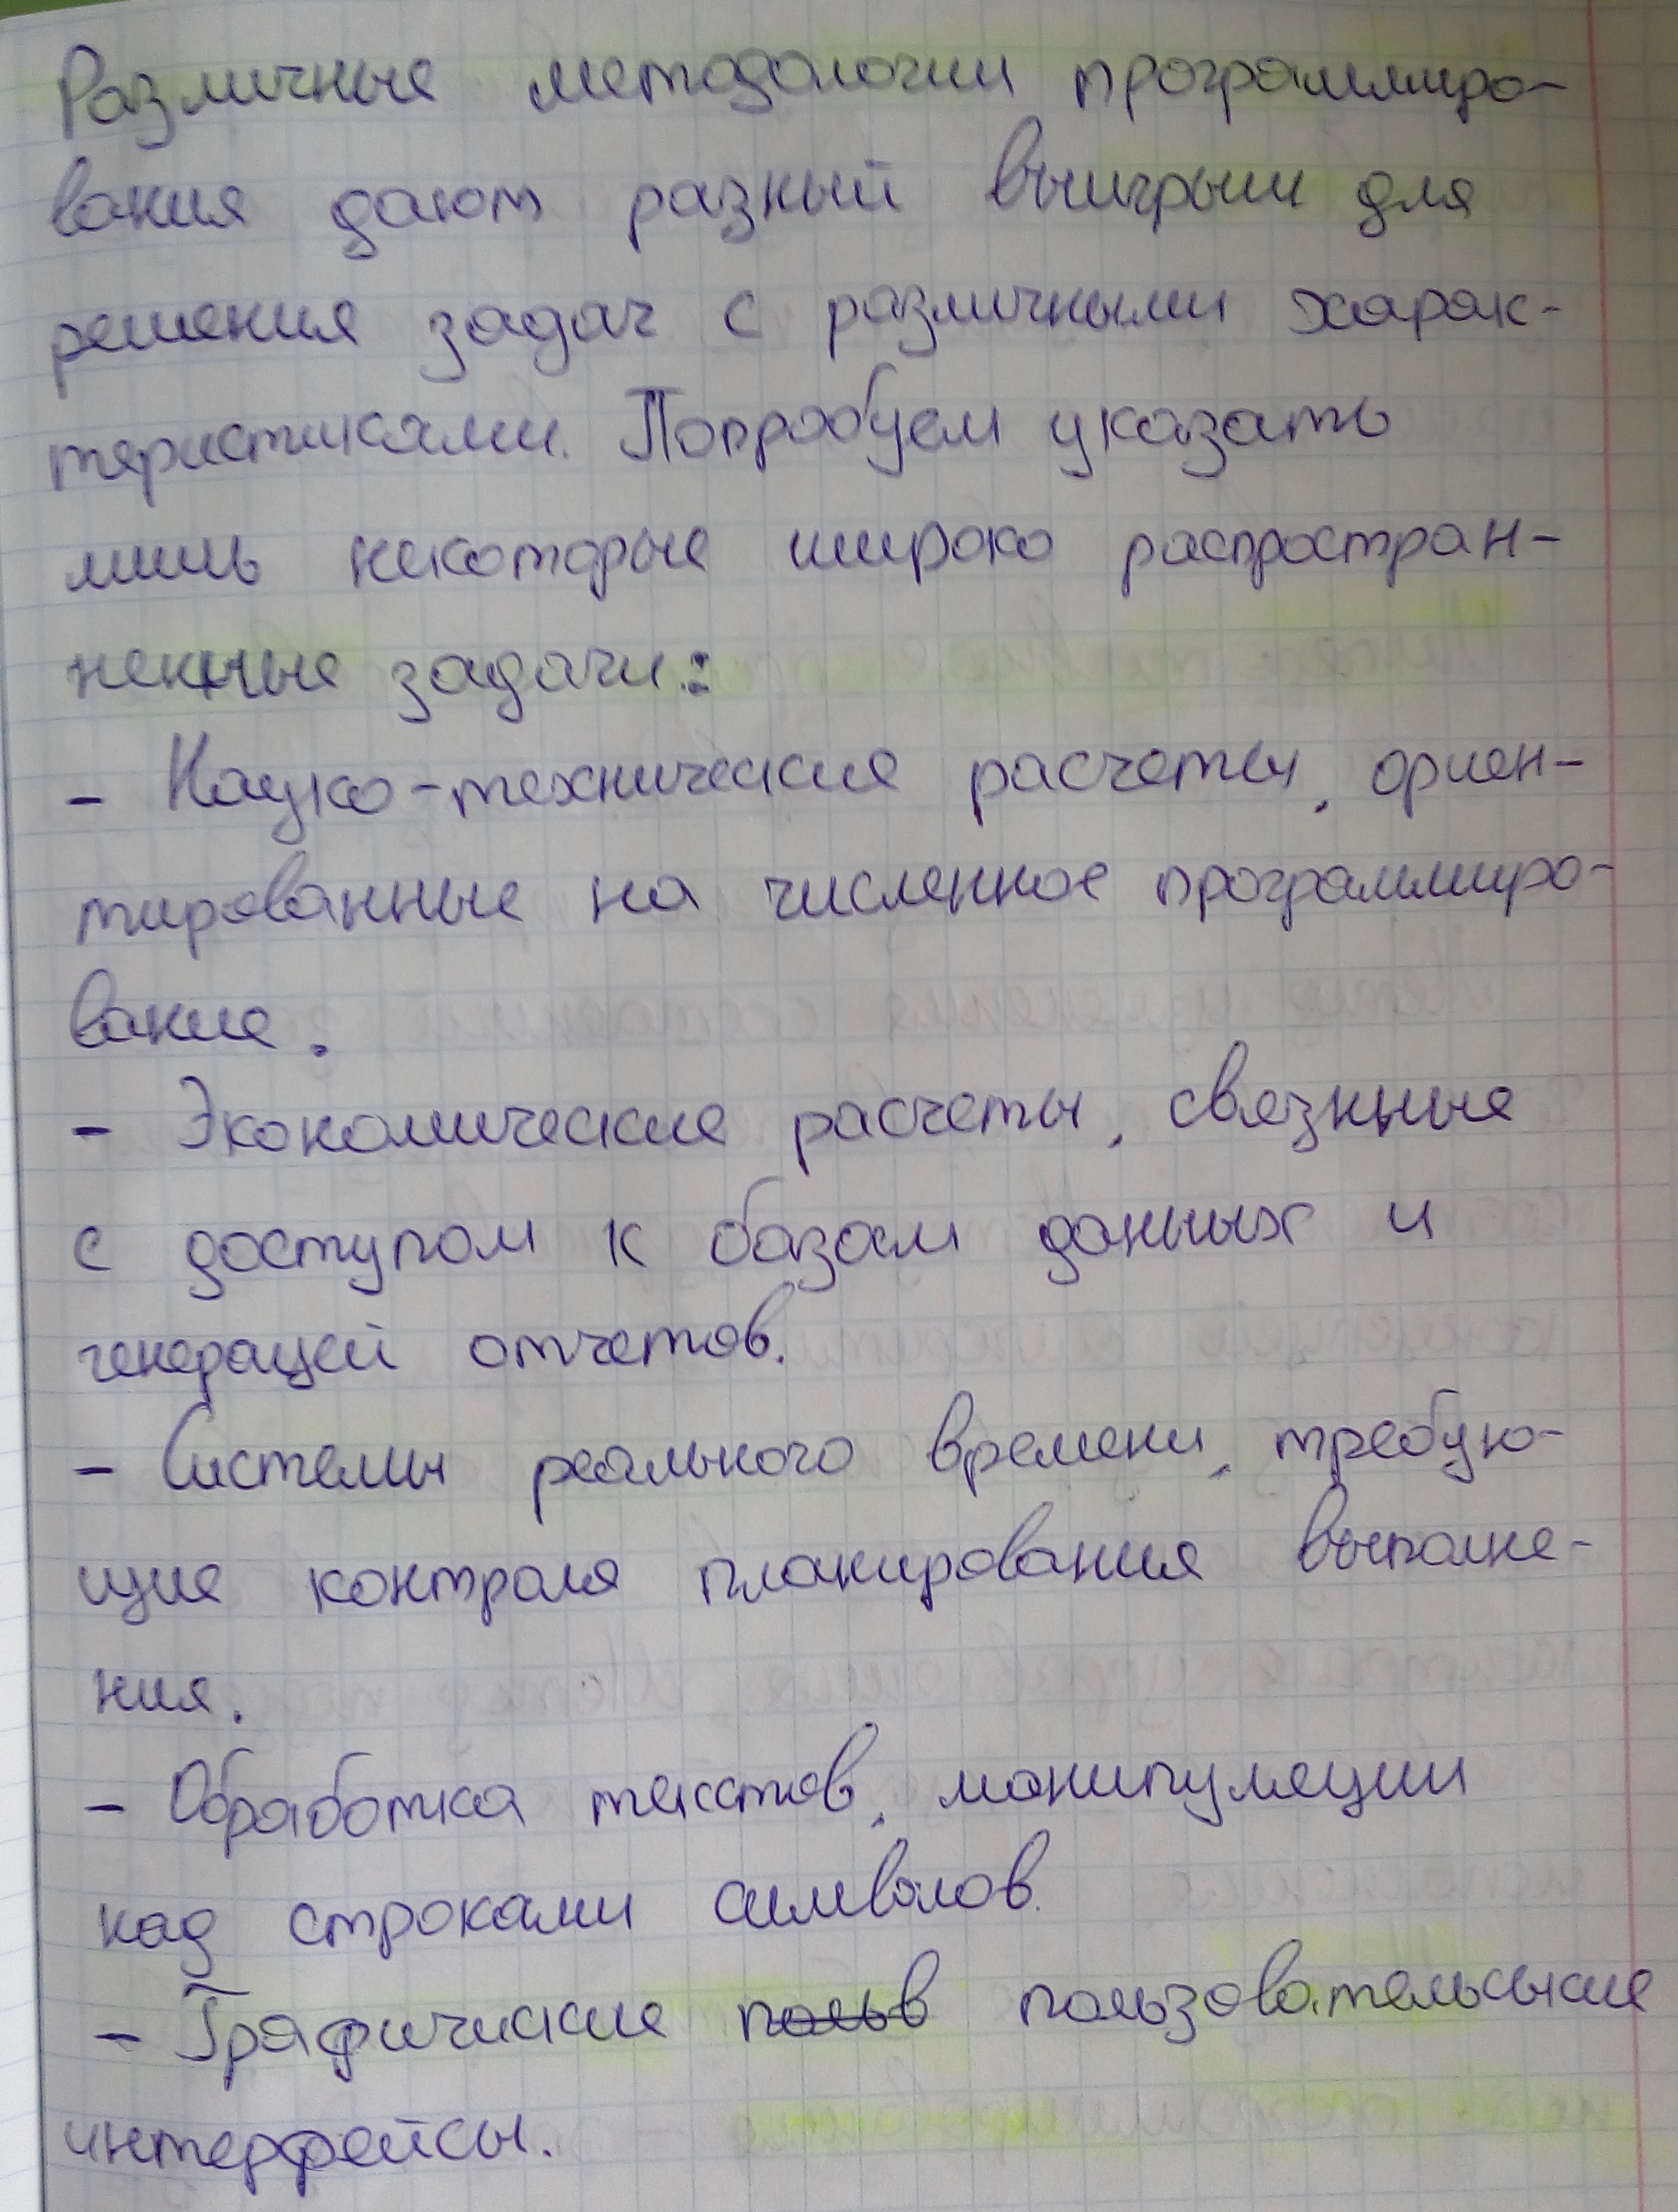 Различные методологии программиро-
вания дают разный выигрыш для
решения задач с различными харак-
теристиками. Попробуем указать
лишь некоторые широко распростран-
ненные задачи:
- Науко-технические расчеты, ориен-
тированные на численное программиро-
вание.
- Экономические расчеты, связнные
с доступом к базам данных и
генерацей отчетов.
- Системы реального времени, требую-
щие контроля планирования выполне-
ния.
- Обработка текстов, манипуляции
над строками символов.
- Графичиские польв пользовательские
интерфейсы.